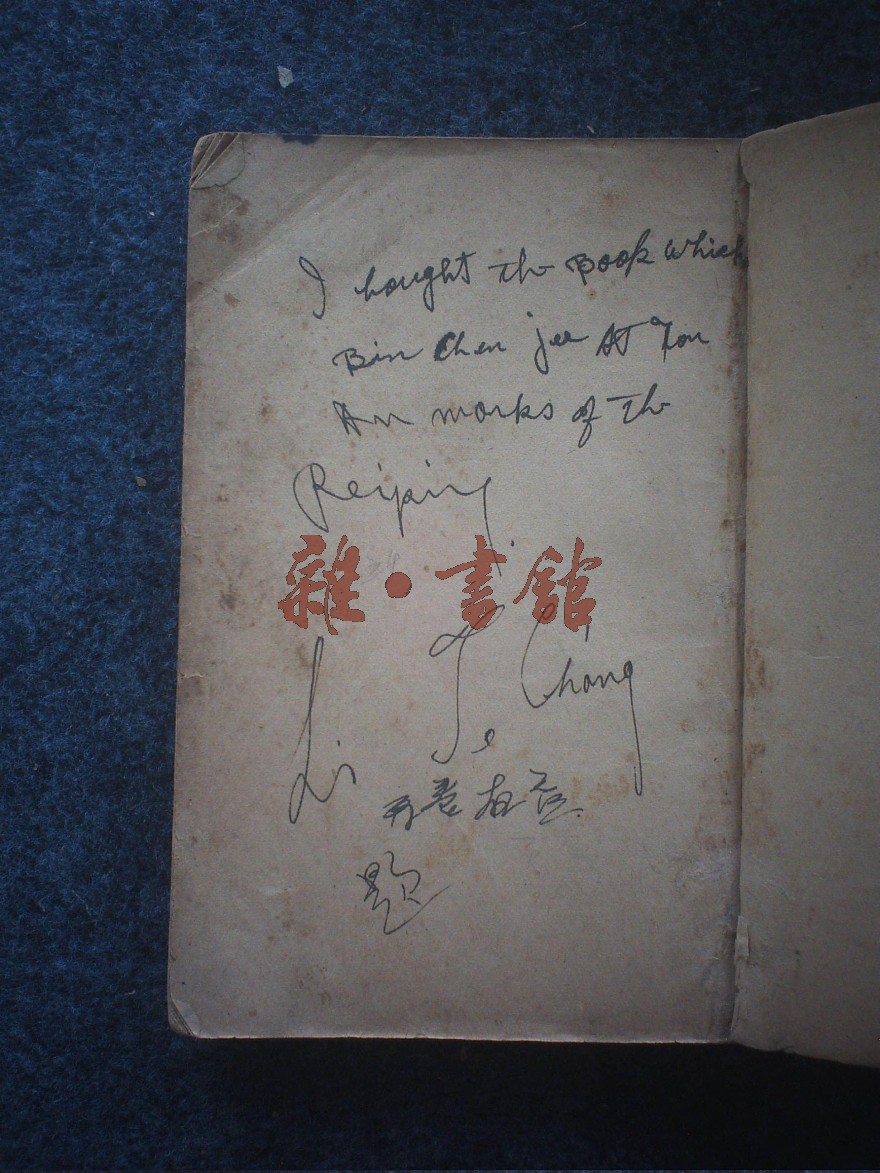 I bought the Book which
Bin Chen Jee At Ton
An marks of the
Peiping
雜·書舘
Li Te Chang
題